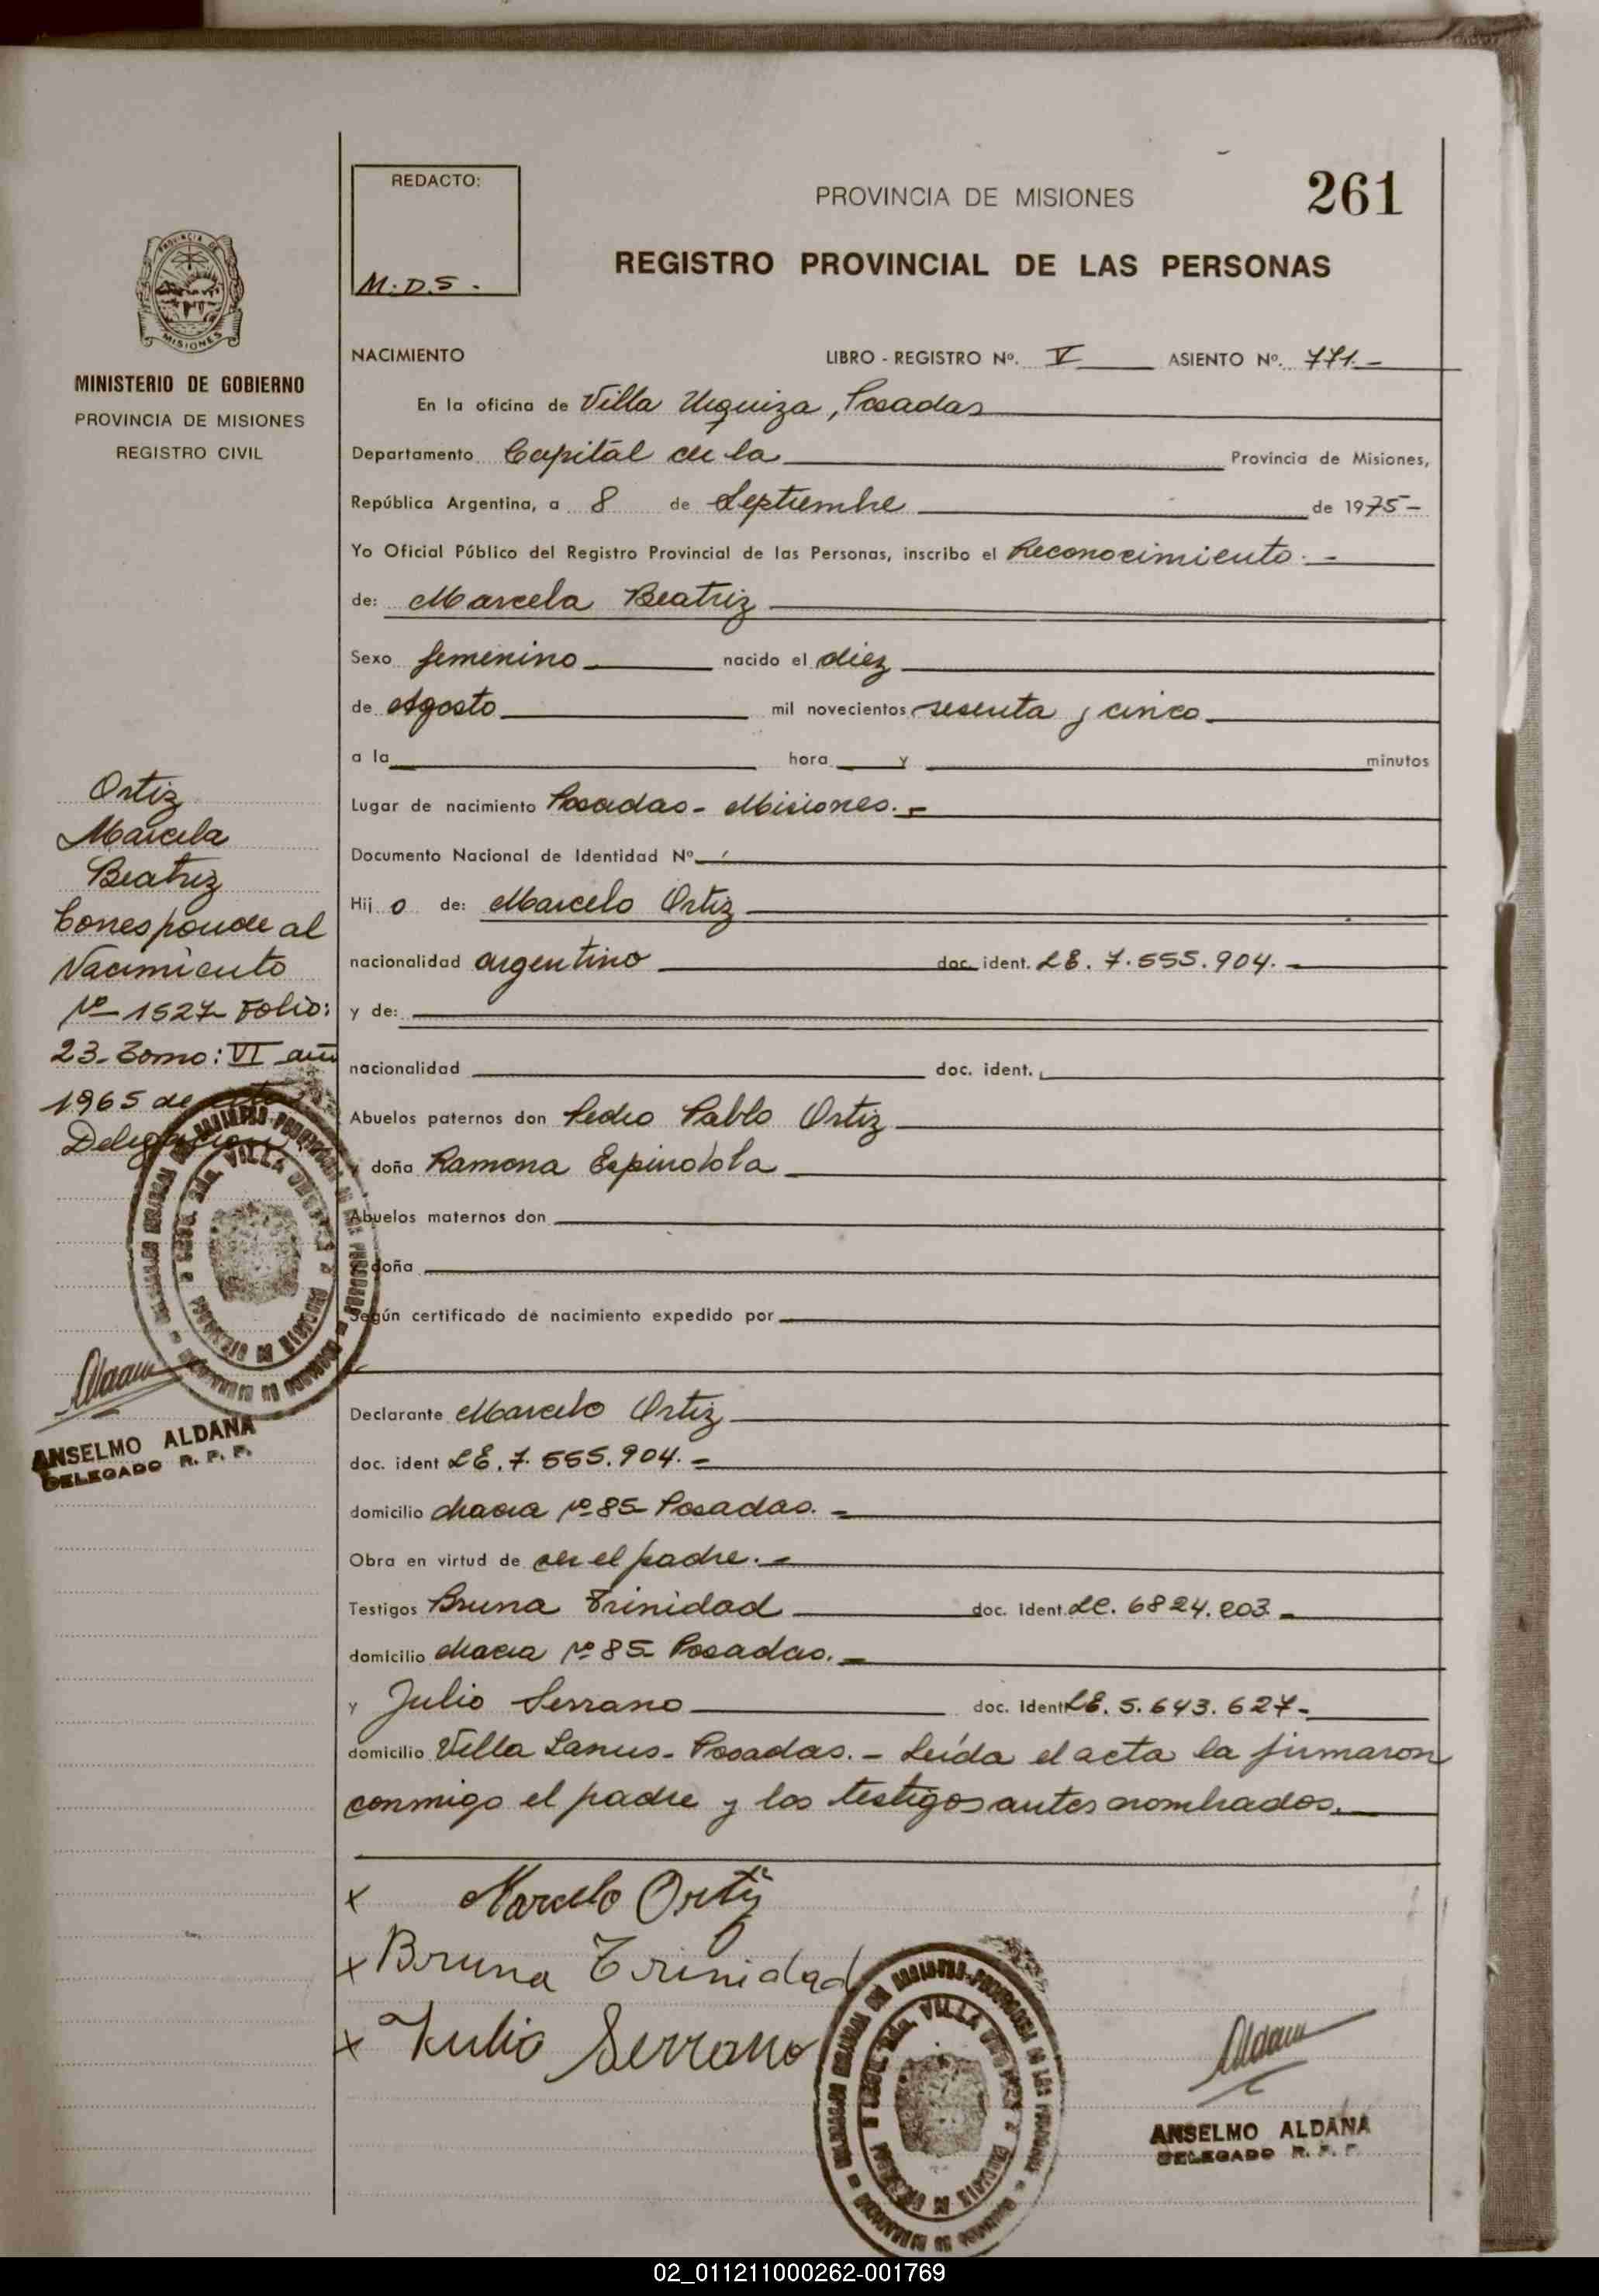 REDACTO:
M.D.S.
PROVINCIA DE MISIONES
261
REGISTRO PROVINCIAL DE LAS PERSONAS
MISIONES
MINISTERIO DE GOBIERNO
PROVINCIA DE MISIONES
REGISTRO CIVIL
NACIMIENTO LIBRO - REGISTRO Nº. V ASIENTO Nº. 771.-
En la oficina de Villa Urquiza, Posadas
Departamento Capital de la Provincia de Misiones,
República Argentina, a 8 de Septiembre de 1975-
Yo Oficial Público del Registro Provincial de las Personas, inscribo el Reconocimiento.-
de: Marcela Beatriz
Sexo femenino nacido el diez
de Agosto mil novecientos sesenta y cinco
a la hora y minutos
Lugar de nacimiento Posadas - Misiones.-
Documento Nacional de Identidad Nº
Hij o de: Marcelo Ortiz
nacionalidad argentino doc. ident. LE. 7.555.904.-
y de:
nacionalidad doc. ident.
Abuelos paternos don Pedro Pablo Ortiz
doña Ramona Espindola
Abuelos maternos don
doña
Según certificado de nacimiento expedido por
Declarante Marcelo Ortiz
doc. ident LE. 7.555.904.-
domicilio chacra Nº 85 Posadas.-
Obra en virtud de ser el padre.-
Testigos Bruna Trinidad doc. Ident. LC. 6824.203.-
domicilio chacra Nº 85 Posadas.-
y Julio Serrano doc. Ident LE. 5.643.627-
domicilio Villa Lanus - Posadas.- Leída el acta la firmaron
conmigo el padre y los testigos antes nombrados.
x Marcelo Ortiz
x Bruna Trinidad
x Julio Serrano
Aldana
ANSELMO ALDANA
DELEGADO R. P. P.
Ortiz
Marcela
Beatriz
Corresponde al
Nacimiento
Nº 1527 Folio:
23- Tomo: VI año
1965 de esta
Delegacion
Aldana
ANSELMO ALDANA
DELEGADO R. P. P.
02_011211000262-001769